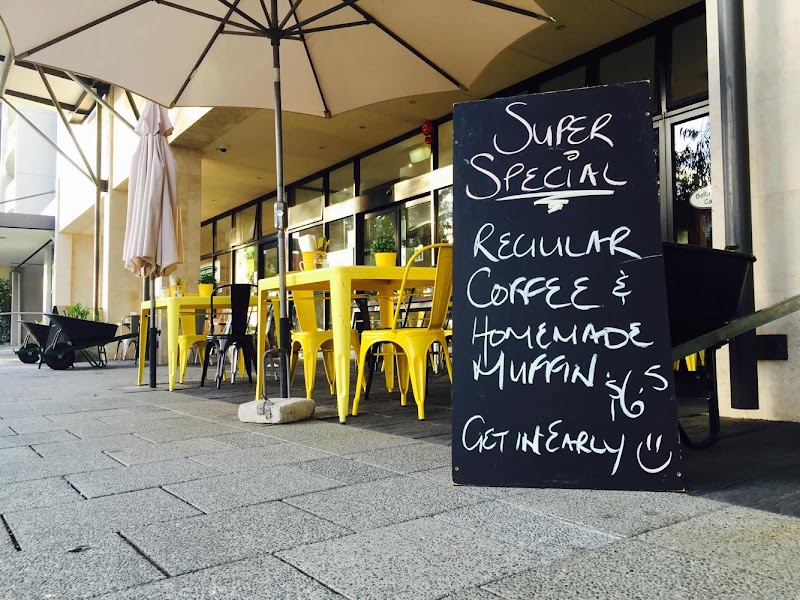 SUPER
SPECIAL
REGULAR
COFFEE &
HOMEMADE
MUFFIN $6.5
GET IN EARLY